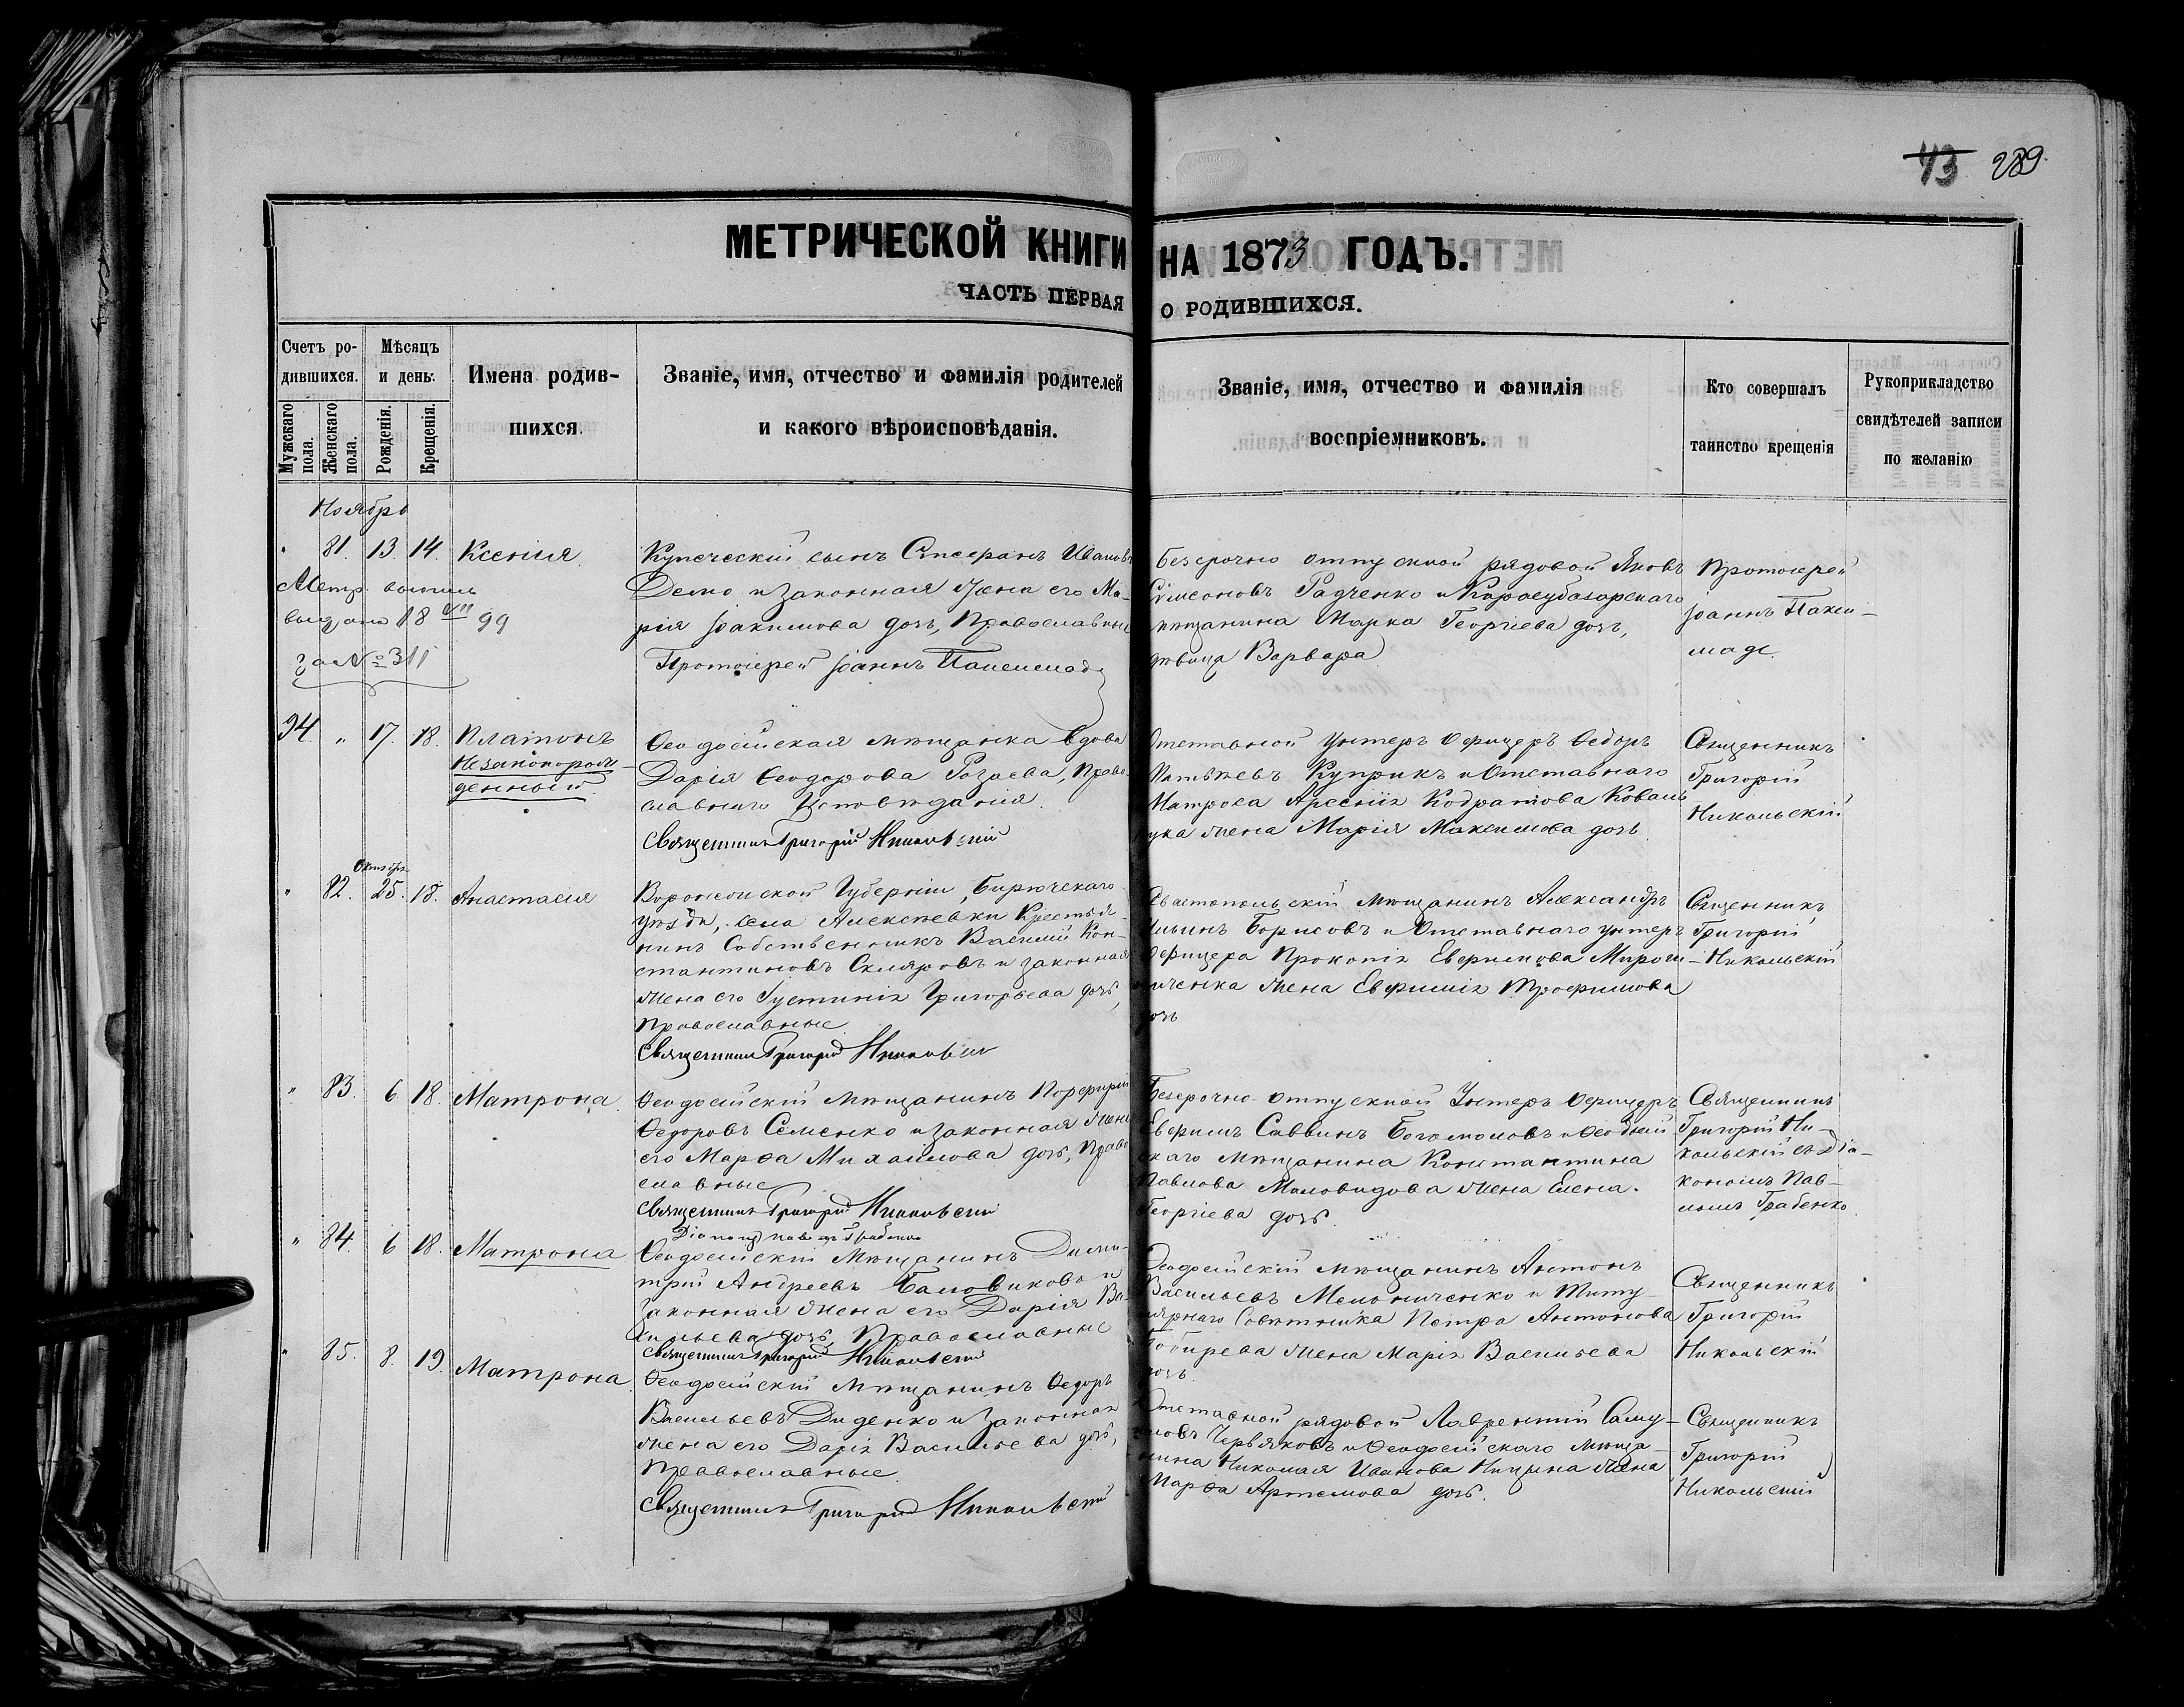 73 289
МЕТРИЧЕСКОЙ КНИГИ НА 1873 ГОДЪ.
ЧАСТЬ ПЕРВАЯ О РОДИВШИХСЯ.
Счетъ ро-
дившихся.
Мужскаго пола.
Женскаго пола.
Мѣсяцъ
и день.
Рожденія.
Крещенія.
Имена родив-
шихся.
Званіе, имя, отчество и фамилія родителей
и какого вѣроисповѣданія.
Званіе, имя, отчество и фамилія
воспріемниковъ.
Кто совершалъ
таинство крещенія
Рукоприкладство
свидѣтелей записи
по желанію
Ноябрь
81. 13. 14. Ксенія.
Метр. выпись
выдана 18 VIII 99
за № 311
Купеческій сынъ Иванов
Демо и законная жена его Ма-
рія Іоакимова дочь, Православные
Протоіерей Іоаннъ
безсрочно отпускной рядовой Яковъ
Сѵмеоновъ Радченко и Карасубазарскаго
мѣщанина Марка Георгіева дочь,
дѣвица Варвара
Протоіерей
Іоаннъ
94. " 17. 18. Платонъ
Незаконорож-
денный.
Ѳеодосійская мѣщанка вдова
Дарія Ѳеодорова Рогаева, Право-
славнаго Исповѣданія.
Священникъ Григорій Никольскій
Отставной Унтеръ Офицеръ Ѳедоръ
Матвѣевъ Куприкъ и Отставнаго
Матроса Арсенія Кодратова Коваль
чука жена Марія Максимова дочь
Священникъ
Григорій
Никольскій
" 82. Октябрь 25. 18. Анастасія
Воронежской Губерніи, Бирюческаго
уѣзда, села Алексѣевки Крестья-
нинъ Собственникъ Василій Кон-
стантиновъ Скляровъ и законная
жена его Іустинія Григорьева дочь,
Православные
Священникъ Григорій Никольскій
Севастопольскій мѣщанинъ Александръ
Ильинъ Борисовъ и Отставнаго унтеръ
Офицера Прокопія Евфимова Мирош
ниченка жена Евфимія Трофимова
дочь
Священникъ
Григорій
Никольскій
" 83. 6. 18. Матрона.
Ѳеодосійскій мѣщанинъ Порфирій
Ѳедоровъ Семенко и законная жена
его Марѳа Михайлова дочь, Право
славные
Священникъ Григорій Никольскій
Діаконъ Павелъ Грабенко
Безсрочно-отпускной Унтеръ Офицеръ
Евфимъ Саввинъ Богомоловъ и Ѳеодосій
скаго мѣщанина Константина
Павлова Маловидова жена Елена
Георгіева дочь.
Священникъ
Григорій Ни-
кольскій съ Діа-
кономъ Пав-
ломъ Грабенко
" 84. 6 18. Матрона
Ѳеодосійскій Мѣщанинъ Дими-
трій Андреевъ Баловиковъ и
законная жена его Дарія Ва-
сильева дочь, Православные
Священникъ Григорій Никольскій
Ѳеодосійскій мѣщанинъ Антонъ
Васильевъ Мельниченко и Титу-
лярнаго Совѣтника Петра Антонова
жена Марія Васильева
дочь.
Священникъ
Григорій
Никольскій
" 85. 8. 19. Матрона
Ѳеодосійскій мѣщанинъ Ѳедоръ
Васильевъ Диденко и законная
жена его Дарія Васильева дочь,
Православные.
Священникъ Григорій Никольскій
Отставной рядовой Лаврентій Саму-
Червяковъ и Ѳеодосійскаго мѣща-
нина Николая Иванова жена
Марѳа Артемова дочь.
Священникъ
Григорій
Никольскій